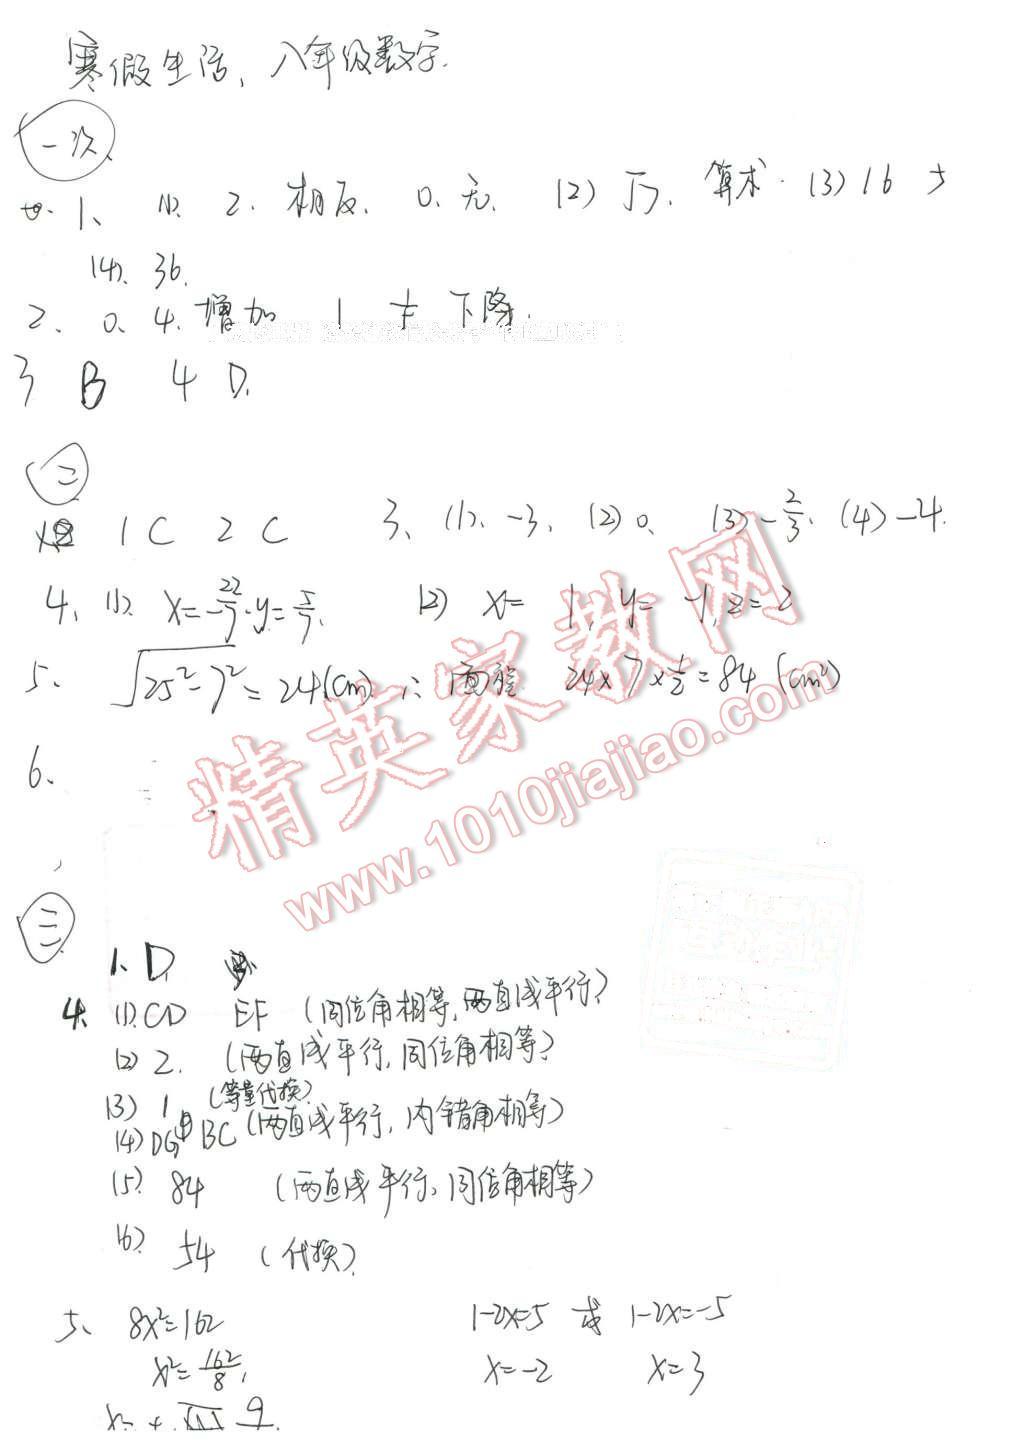 寒假生活, 八年级数学.
一次
1、 (1). 2. 相反. 0. 无. (2) 算术. (3) 16 5
(4). 36.
2、 0. 4. 增加 1 下降.
3 B 4 D.
二
1 C 2 C 3、(1)、-3、(2) 0、 (3) -2/3、 (4) -4.
4、(1). x=-22/7. y=5/7. (2) x= 1, y= -1, z=2
5、 √25²-7² = 24(cm) ∴ 面积 24×7×1/2=84 (cm²)
6、
精英家教网
www.1010jiajiao.com
三
1、D
4. (1). CD EF (同位角相等, 两直线平行)
(2) 2. (两直线平行, 同位角相等)
(3) 1 (等量代换)
(4) DG BC (两直线平行, 内错角相等)
(5) 84 (两直线平行, 同位角相等)
(6) 54 (代换)
5、 8x²=162 1-2x=5 或 1-2x=-5
x²=162/8, x=-2 x=3